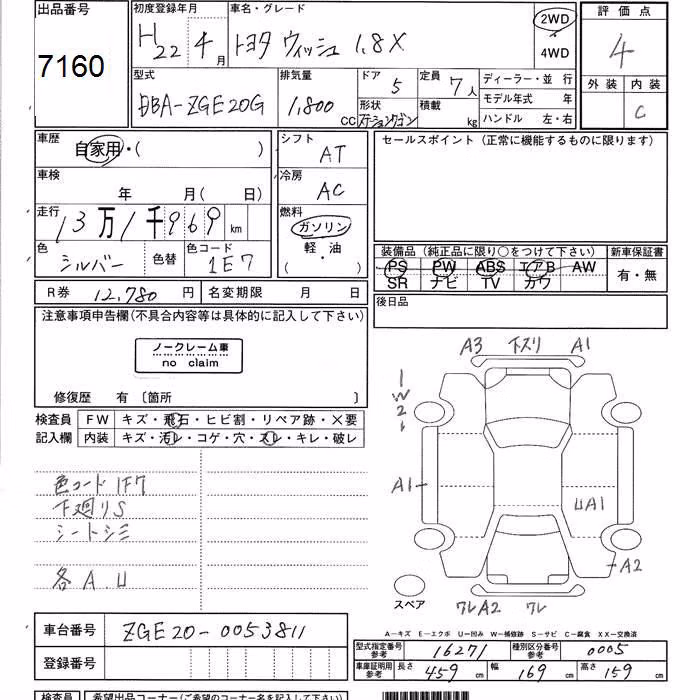 出品番号
7160
初度登録年月
H22 4月
車名・グレード
トヨタ ウィッシュ 1.8X
2WD
4WD
評価点
4
外装 内装
C
型式
DBA-ZGE20G
排気量
1,800 CC
ドア 5
形状
ステーションワゴン
定員 7人
積載 kg
ディーラー・並行
モデル年式 年
ハンドル 左・右
車歴
自家用・( )
車検
年 月( 日)
走行
13万1千969 km
色
シルバー
色替
色コード
1E7
シフト
AT
冷房
AC
燃料
ガソリン
軽・油
( )
セールスポイント(正常に機能するものに限ります)
装備品(純正品に限り○をつけて下さい)
PS PW ABS エアB AW
SR ナビ TV カワ
新車保証書
有・無
後日品
R券 12,780円
名変期限 月 日
注意事項申告欄(不具合内容等は具体的に記入して下さい)
ノークレーム車
no claim
修復歴 有 〔箇所 〕
検査員
記入欄
FW キズ・飛石・ヒビ割・リペア跡・×要
内装 キズ・汚レ・コゲ・穴・スレ・キレ・破レ
色コード 1F7
下廻りS
シートシミ
各A.U
A3 下スリ A1
1
W2
A1
UA1
A2
スペア
ワレA2 ワレ
A-キズ E-エクボ U-凹み W-補修跡 S-サビ C-腐食 XX-交換済
車台番号
ZGE20-0053811
登録番号
型式指定番号
参考
16271
種別区分番号
参考
0005
車庫証明用
参考
長さ 459 cm
幅 169 cm
高さ 159 cm
検査員
希望出品コーナー(ご希望のコーナー名を記入して下さい)